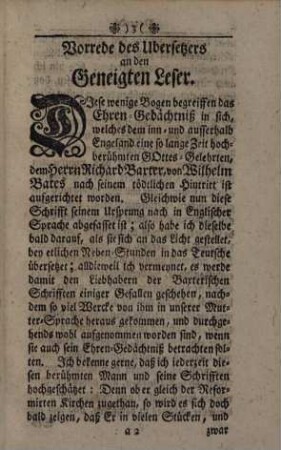 )3(
Vorrede des Ubersetzers
an den
Geneigten Leser.
DIese wenige Bogen begreiffen das
Ehren-Gedächtniß in sich,
welches dem inn- und ausserhalb
Engeland eine so lange Zeit hoch-
berühmten GOttes-Gelehrten,
dem Herrn Richard Baxter, von Wilhelm
Bates nach seinem tödtlichen Hintritt ist
aufgerichtet worden. Gleichwie nun diese
Schrifft seinem Ursprung nach in Englischer
Sprache abgefasset ist; also habe ich dieselbe
bald darauf, als sie sich an das Licht gestellet,
bey etlichen Neben-Stunden in das Teutsche
übersetzet; alldieweil ich vermeynet, es werde
damit den Liebhabern der Baxterischen
Schrifften einiger Gefallen geschehen, nach-
dem so viel Wercke von ihm in unserer Mut-
ter-Sprache heraus gekommen, und durchge-
hends wohl aufgenommen worden sind, wenn
sie auch sein Ehren-Gedächtniß betrachten sol-
ten. Ich bekenne gerne, daß ich jederzeit die-
sen berühmten Mann und seine Schrifften
hochgeschätzet: Denn ob er gleich der Refor-
mirten Kirchen zugethan, so wird es sich doch
bald zeigen, daß Er in vielen Stücken, und
a 2 zwar